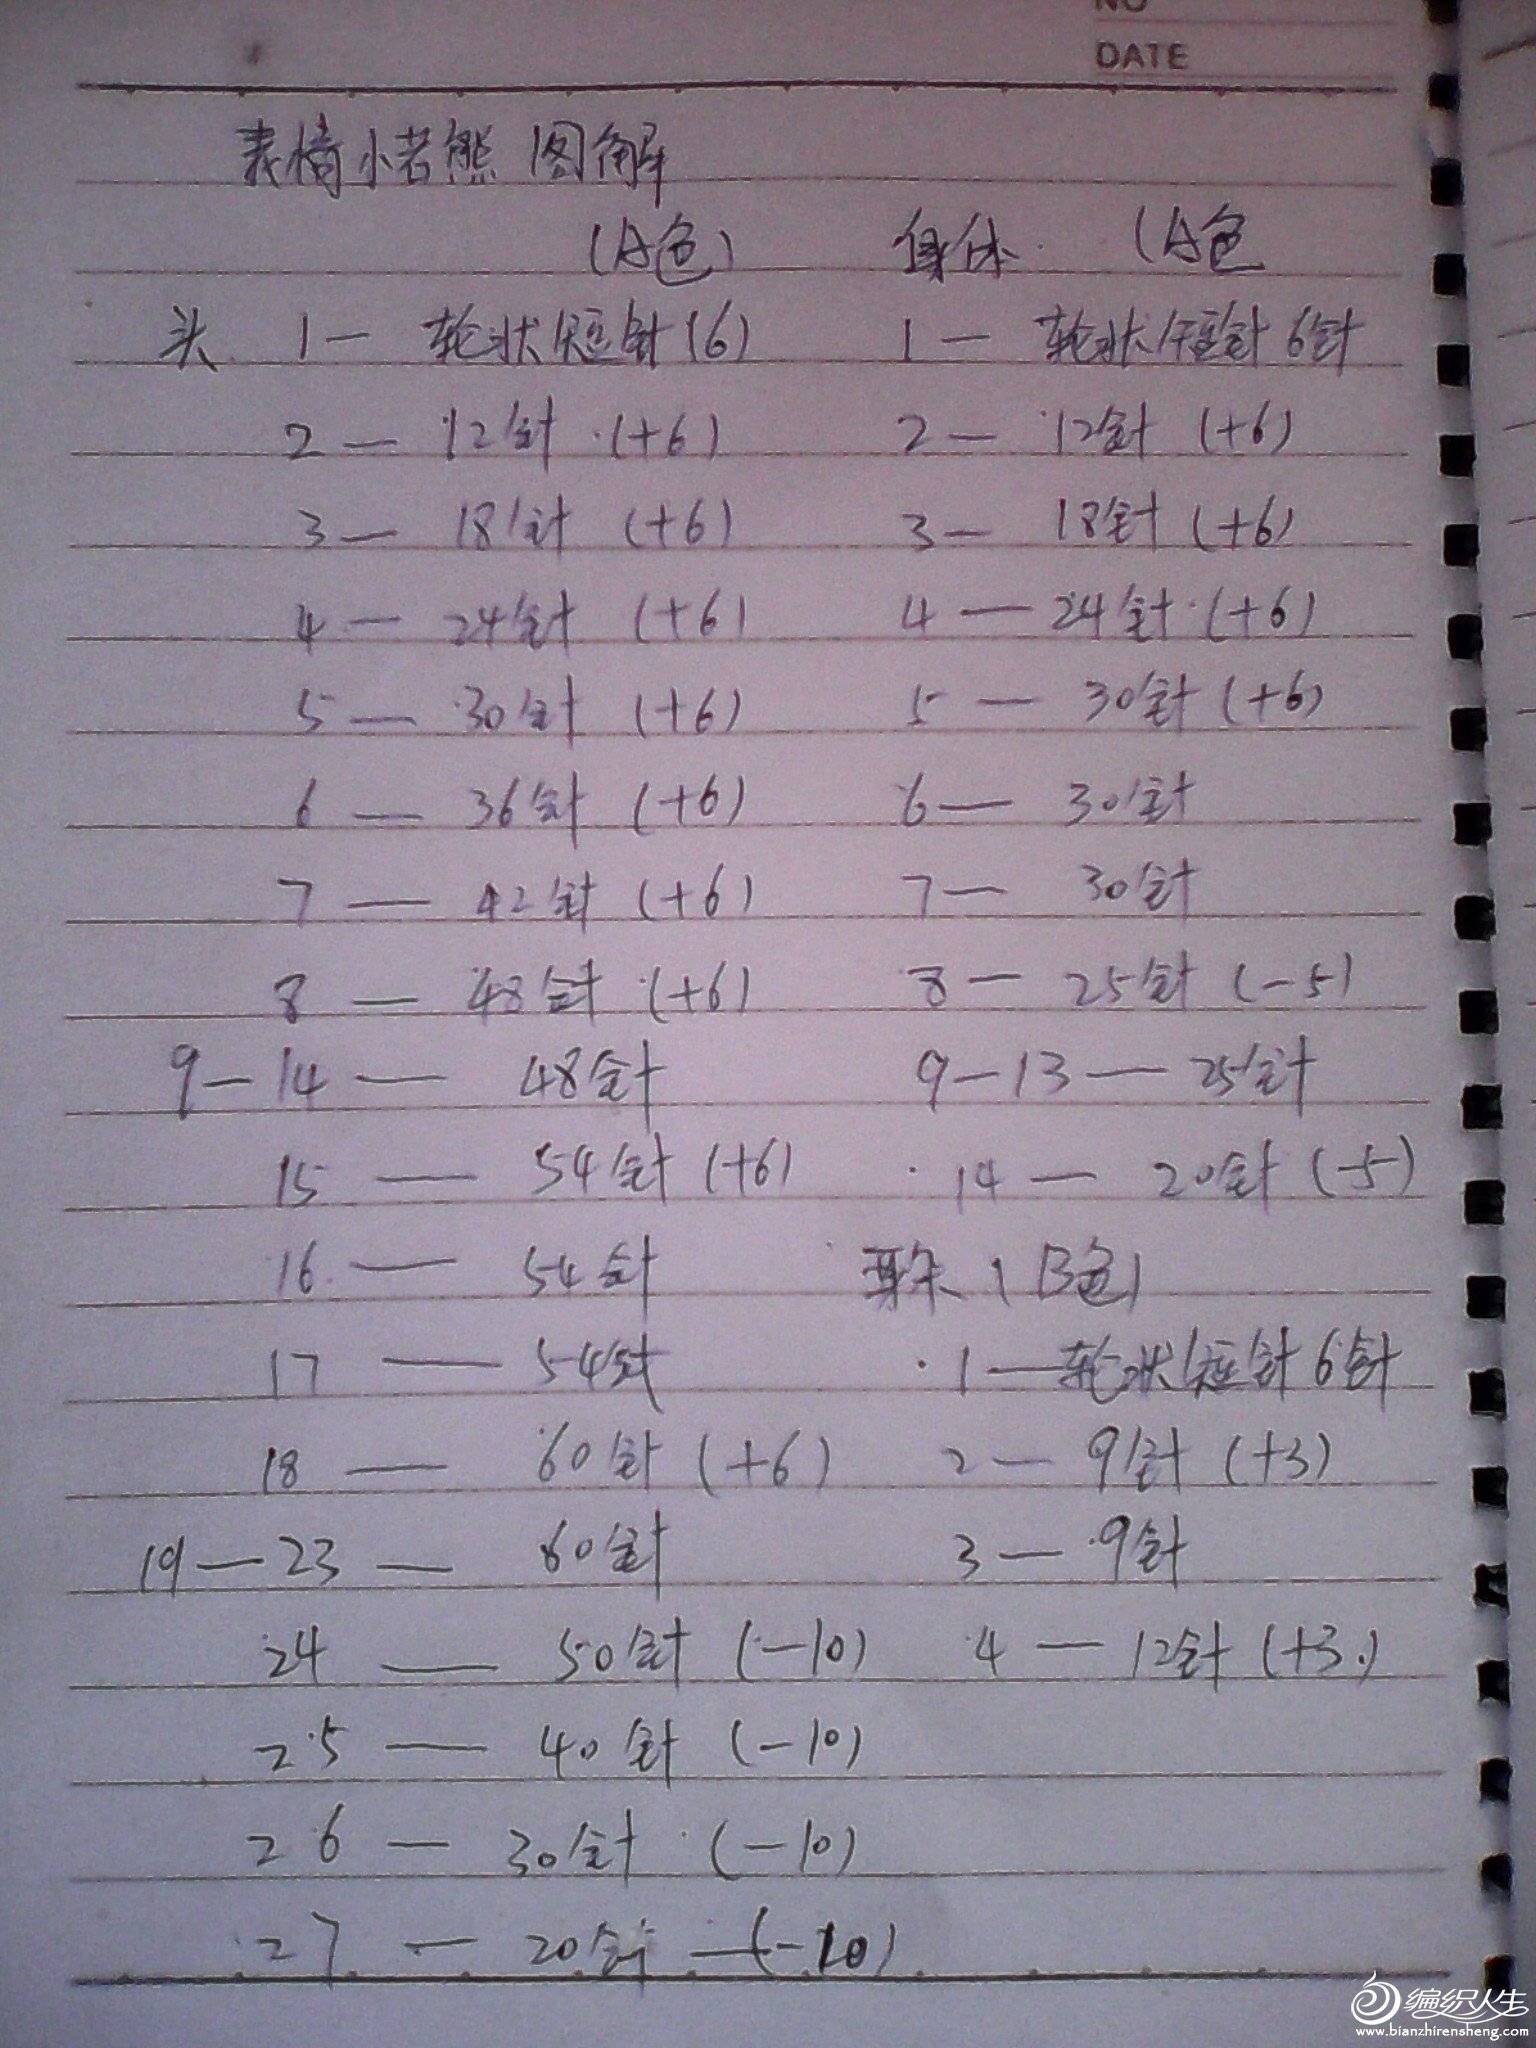 NO
DATE
表情小老熊 图解
(A色)
头 1— 轮状短针(6)
2— 12针 (+6)
3— 18针 (+6)
4— 24针 (+6)
5— 30针 (+6)
6— 36针 (+6)
7— 42针 (+6)
8— 48针 (+6)
9—14— 48针
15— 54针 (+6)
16— 54针
17— 54针
18— 60针 (+6)
19—23— 60针
24— 50针 (-10)
25— 40针 (-10)
26— 30针 (-10)
27— 20针 —(-10)
身体 (A色
1— 轮状短针6针
2— 12针 (+6)
3— 18针 (+6)
4— 24针 (+6)
5— 30针 (+6)
6— 30针
7— 30针
8— 25针 (-5)
9—13— 25针
14— 20针 (-5)
耳朵 (B色)
1—轮状短针6针
2— 9针 (+3)
3— 9针
4— 12针 (+3)
编织人生
www.bianzhirensheng.com